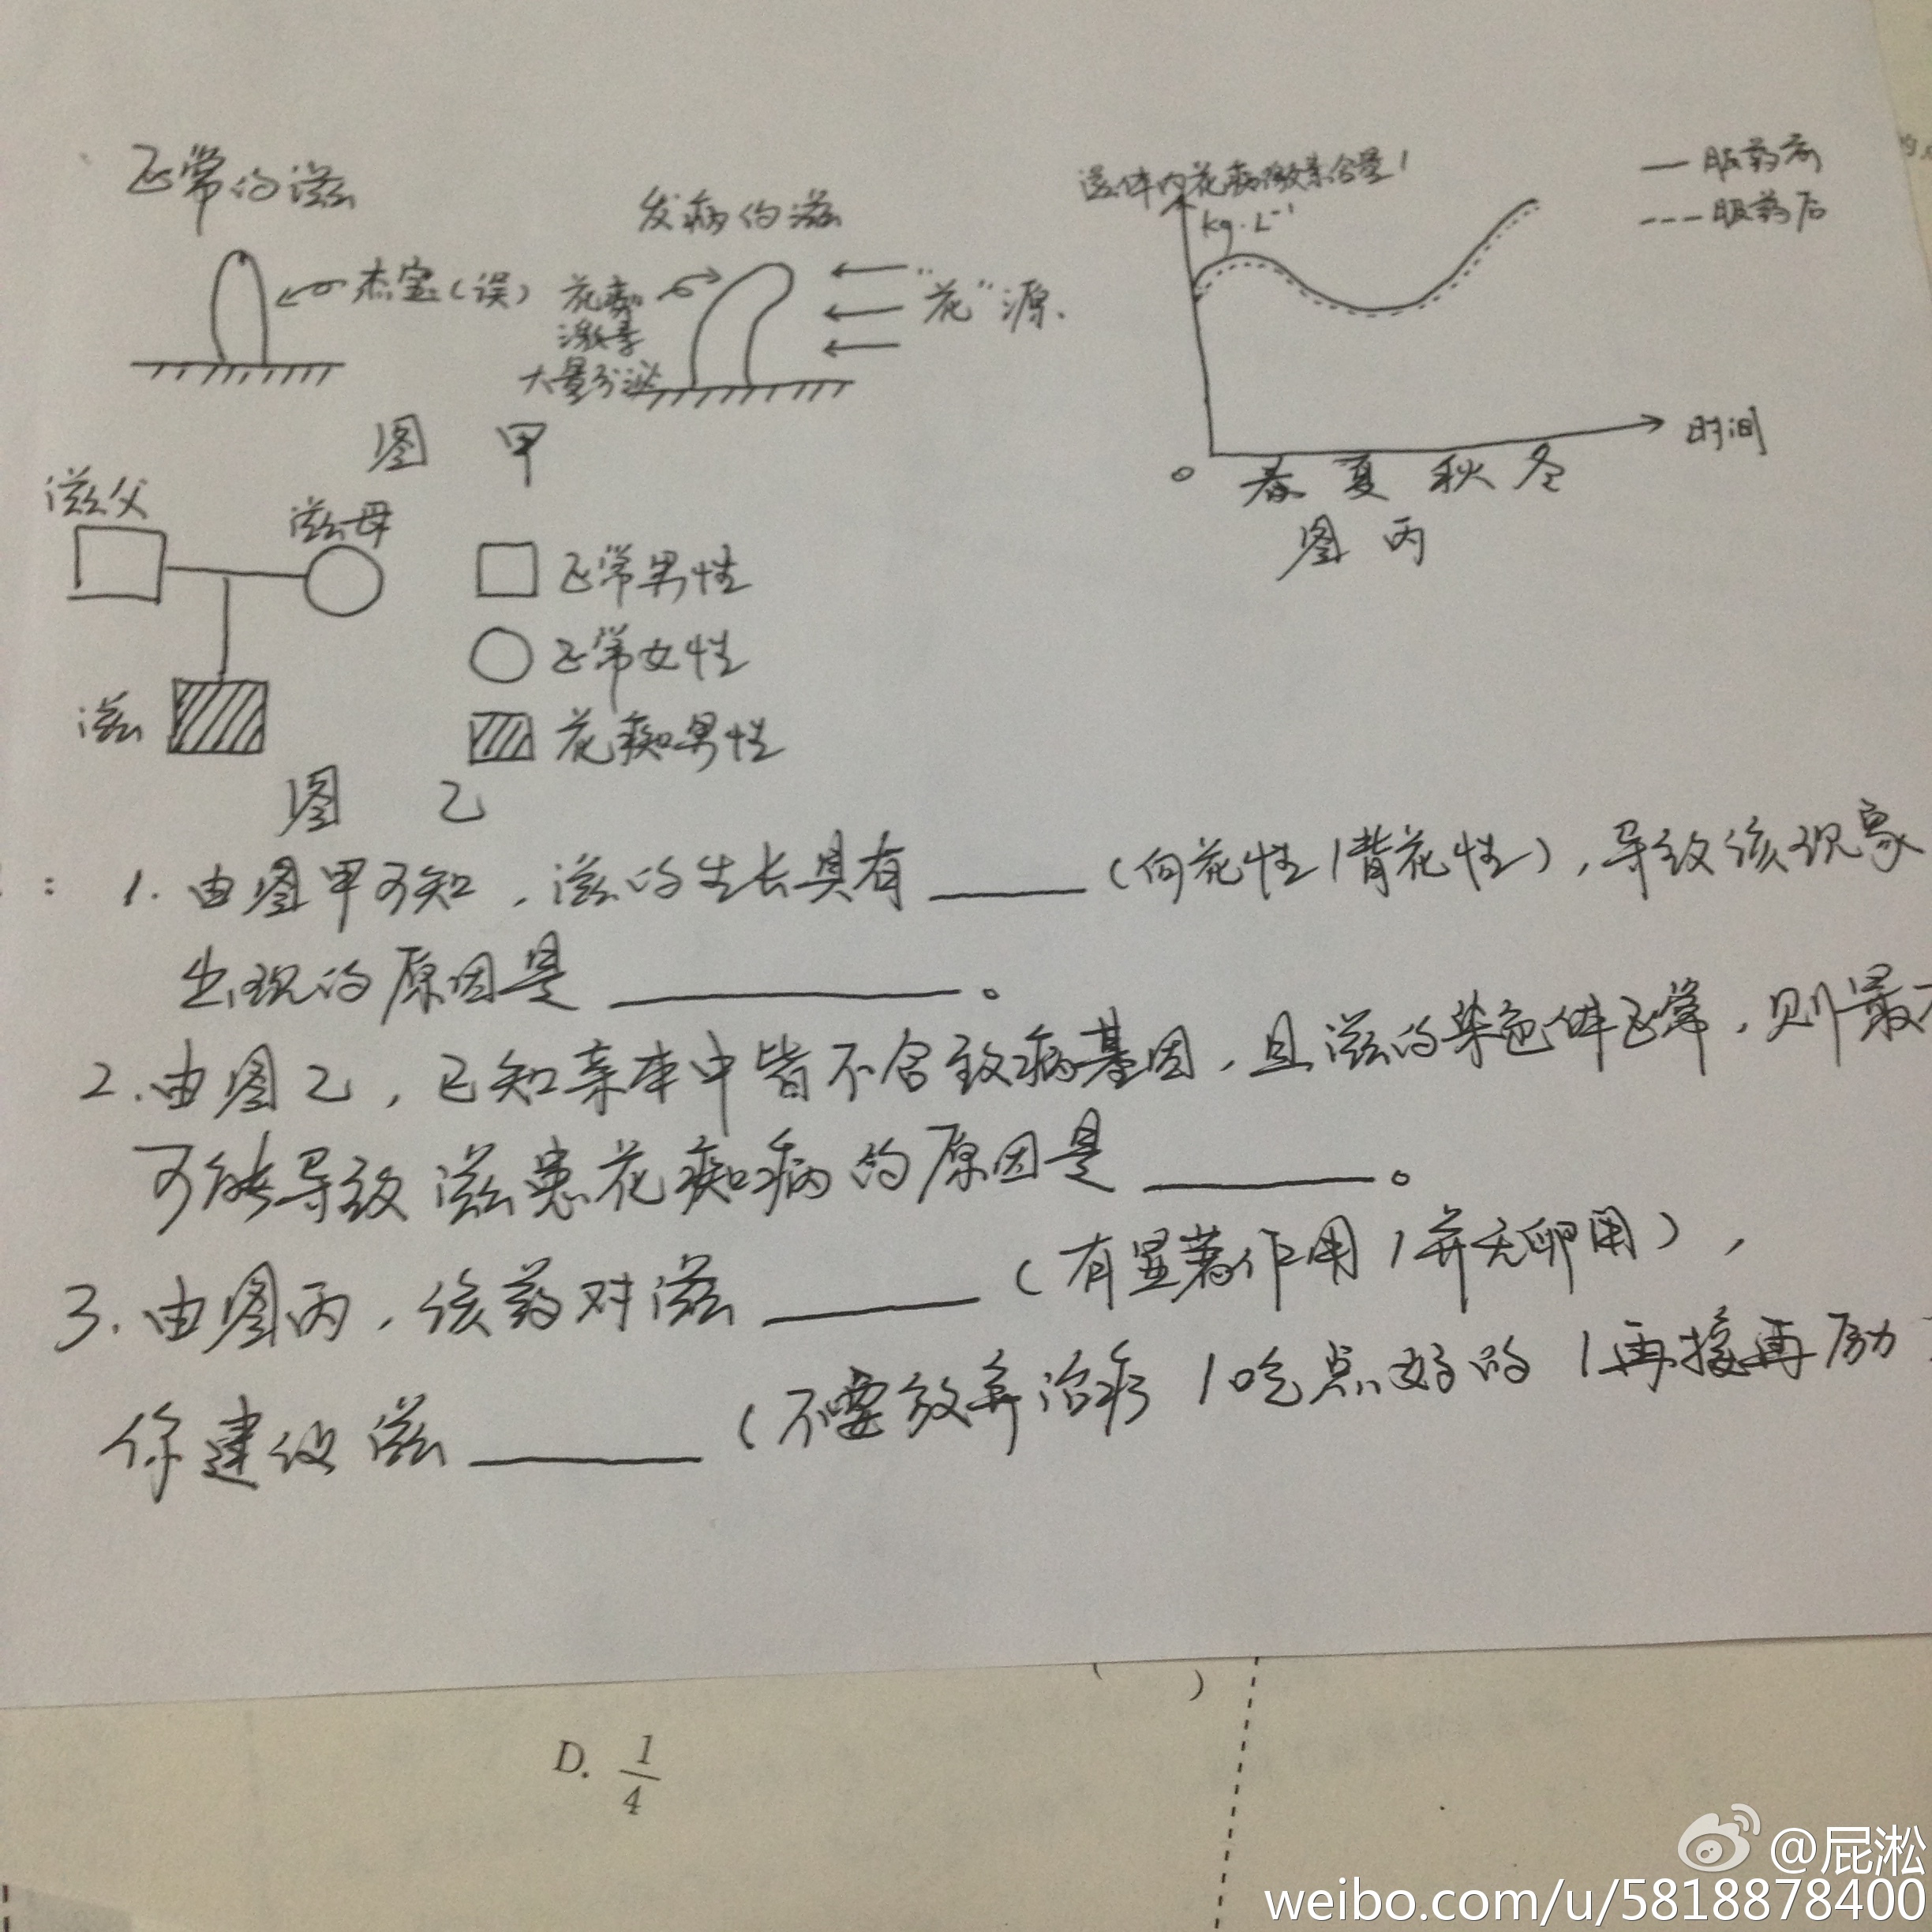 正常的滋
杰宝(误)
发病的滋
花痴
激素
大量分泌
"花"源.
图 甲
滋体内花痴激素含量/
kg·L⁻¹
— 服药前
--- 服药后
0 春 夏 秋 冬
时间
图 丙
滋父
滋母
滋
正常男性
正常女性
花痴男性
图 乙
: 1. 由图甲可知,滋的生长具有______(向花性/背花性),导致该现象
出现的原因是____________。
2. 由图乙,已知亲本中皆不含致病基因,且滋的染色体正常,则最
可能导致滋患花痴病的原因是________。
3. 由图丙,该药对滋________(有显著作用/并无卵用),
你建议滋________(不要放弃治疗/吃点好的/再接再励
( )
D. 1/4
@屁淞
weibo.com/u/5818878400